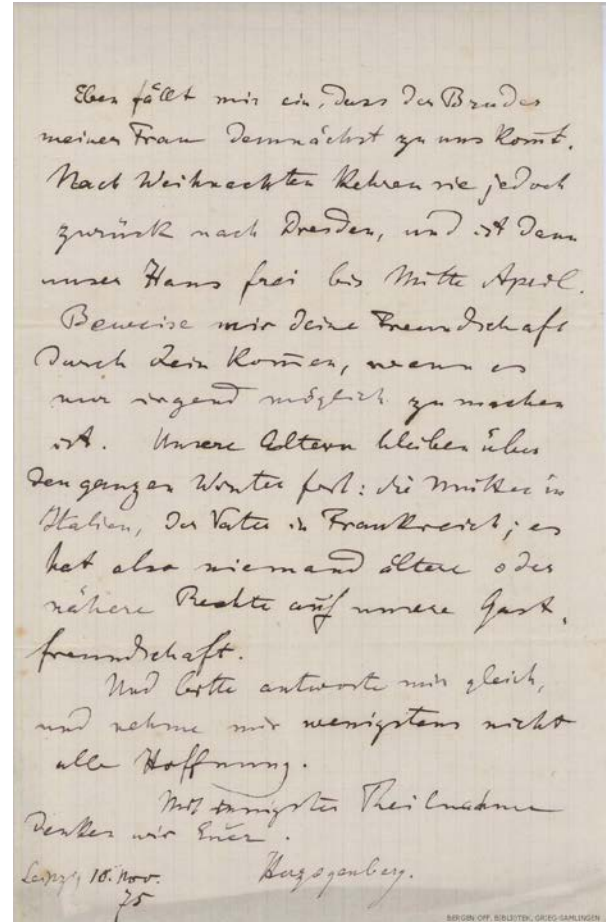 Eben fällt mir ein, dass der Bruder
meiner Frau demnächst zu uns kom̅t.
Nach Weihnachten kehren sie jedoch
zurück nach Dresden, und ist dann
unser Haus frei bis Mitte April.
Beweise mir deine Freundschaft
durch dein Kom̅en, wenn es
nur irgend möglich zu machen
ist. Unsere Eltern bleiben über
den ganzen Winter fort: die Mutter in
Italien, der Vater in Frankreich; es
hat also niemand ältere oder
nähere Rechte auf unsere Gast-
freundschaft.
Und bitte antworte mir gleich,
und nehme mir wenigstens nicht
alle Hoffnung.
Mit innigster Theilnahme
denken wir Euer.
Herzogenberg.
Leipzig 18. Nov.
75
BERGEN OFF. BIBLIOTEK, GRIEG-SAMLINGEN